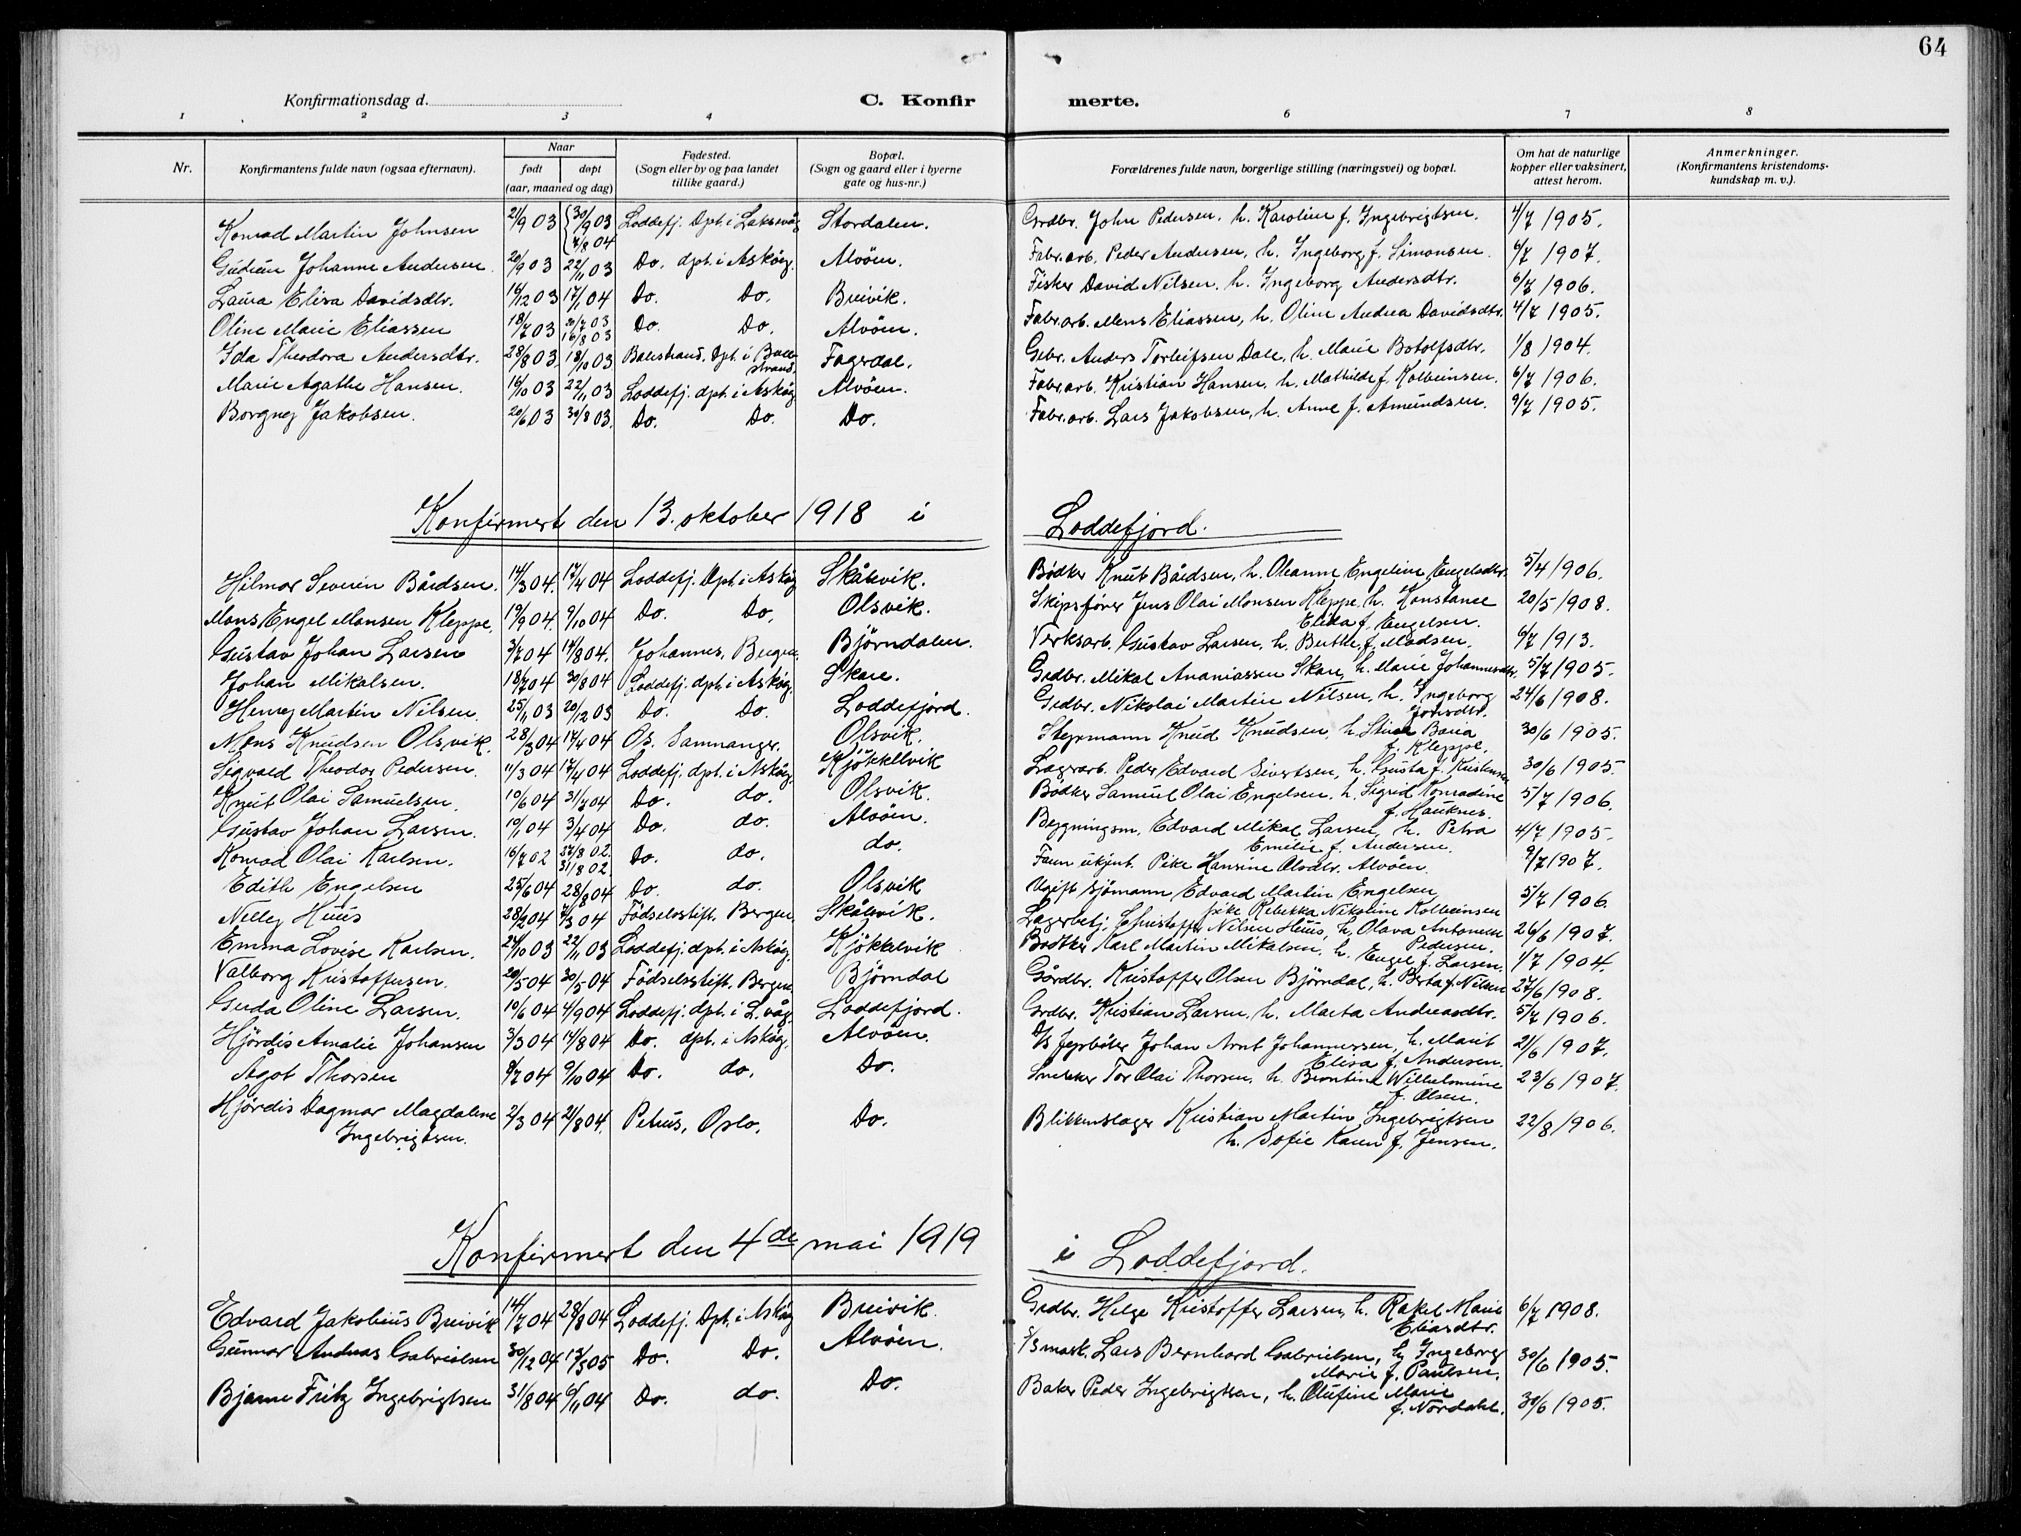 64
Konfirmationsdag d. C. Konfirmerte.
1 2 3 4 6 7 8
Nr. Konfirmantens fulde navn (ogsaa efternavn). Naar født døpt (aar, maaned og dag) Fødested. (Sogn eller by og paa landet tillike gaard.) Bopæl. (Sogn og gaard eller i byerne gate og hus-nr.) Forældrenes fulde navn, borgerlige stilling (næringsvei) og bopæl. Om hat de naturlige kopper eller vaksinert, attest herom. Anmerkninger. (Konfirmantens kristendoms-kundskap m. v.).
Konrad Martin Johnsen 21/9 03 {30/9 03 7/8 04 Loddefj. Dpt. i Laksevåg Stordalen. Grdbr. John Pedersen. h. Karoline f. Ingebrigtsen. 4/7 1905.
Gudrun Johanne Andersen. 20/9 03 22/11 03 Do. dpt. i Askøy. Alvøen. Fabr.arb. Peder Andersen, h. Ingeborg f. Simonsen. 6/7 1907.
Laura Elisa Davidsdtr. 16/12 03 17/1 04 Do. Do. Breivik. Fisker David Nilsen. h. Ingeborg Andersdtr. 6/7 1906.
Oline Marie Eliassen 18/7 03 30/7 03 16/8 03 Do. Do. Alvøen. Fabr.arb. Mons Eliassen, h. Oline Andrea Davidsdtr. 4/7 1905.
Ida Theodora Andersdtr. 28/8 03. 18/10 03 Balestrand. Dpt. i Balestrand. Fagerdal. Gbr. Anders Torleifsen Dale, h. Marie Botolfsdtr. 1/8 1904.
Marie Agathe Hansen. 16/10 03 22/11 03 Loddefj. dpt. i Askøy Alvøen. Fabr.arb. Kristian Hansen, h. Mathilde f. Kolbeinsen. 6/7 1906.
Borgny Jakobsen. 20/6 03 30/8 03. Do. Do. Do. Fabr.arb. Lars Jakobsen, h. Anne f. Amundsen. 9/7 1905.
Konfirmert den 13. oktober 1918 i Loddefjord.
Hilmar Severin Bårdsen. 14/3 04. 17/4 04 Loddefj. Dpt. i Askøy Skålevik. Bødker Knut Bårdsen, h. Oleanne Engeline Engelsdtr. 5/4 1906.
Mons Engel Monsen Kleppe. 19/9 04. 9/10 04 Do. Do. Olsvik. Skipsfører Jens Olai Monsen Kleppe. h. Konstance 20/5 1908.
Elida f. Engelsen.
Gustav Johan Larsen 3/7 04 14/8 04. Johannes, Bergen. Bjørndalen. Verksarb. Gustav Larsen, h. Berthe f. Madsen. 6/7 1913.
Johan Mikalsen. 18/7 04 30/8 04 Loddefj. dpt. i Askøy. Skare. Grdbr. Mikal Ananiassen Skare, h. Marie Johannesdtr. 5/7 1905.
Henry Martin Nilsen. 25/11 03 20/12 03 Do. Do. Loddefjord. Grdbr. Nikolai Martin Nilsen, h. Ingeborg 24/6 1908.
Jonsdtr.
Mons Knudsen Olsvik. 28/3 04 17/4 04 Os. Samnanger. Olsvik. Styrmann Knud Knudsen, h. Stina Baria 30/6 1905.
f. Kleppe.
Sigvald Theodor Pedersen. 11/3 04 17/4 04 Loddefj. dpt. i Askøy. Kjøkkelvik Lagerarb. Peder Edvard Sivertsen, h. Gusta f. Kristensen 30/6 1905.
Knut Olai Samuelsen. 10/6 04 31/7 04 Do. do. Olsvik. Bødker Samuel Olai Engelsen. h. Sigrid Konradine 5/7 1906.
f. Hauknes.
Gustav Johan Larsen. 10/1 04 3/4 04 Do. do. Alvøen. Bygningsm. Edvard Mikal Larsen, h. Petra 4/7 1905.
Emilie f. Andersen.
Konrad Olai Karlsen. 16/7 02 27/8 02. 31/8 02 Do. do. do. Faren ukjent. Pike Hansine Olsdtr. Alvøen. 9/7 1907.
Edith Engelsen 25/6 04 28/8 04 Do. do. Olsvik Ugift sjømann Edvard Martin Engelsen 5/7 1906.
pike Rebekka Nikoline Kolbeinsen
Nelly Huus 28/2 04 7/3 04 Fødselsstift. Bergen. Skålevik. Lagerbetj. Christoffer Nilsen Huus, h. Olava Antonette 26/6 1907.
Pedersen.
Emma Lovise Karlsen. 24/10 03 22/11 03 Loddefj. dpt. i Askøy. Kjøkkelvik Bødker Karl Martin Mikalsen, h. Engel f. Larsen. 1/7 1904.
Valborg Kristoffersen. 20/5 04 30/5 04 Fødselsstift. Bergen. Bjørndal Gårdbr. Kristoffer Olsen Bjørndal, h. Berta f. Nilsen 27/6 1908.
Gerda Oline Larsen. 10/6 04 4/9 04 Loddefj. dpt. i L.våg. Loddefjord. Grdbr. Kristian Larsen, h. Marta Andreasdtr. 5/7 1906.
Hjørdis Amalie Johansen 3/3 04 14/8 04 Do. dpt. i Askøy. Alvøen. D/S fyrbøter Johan Arnt Johannessen, h. Marit 21/6 1907.
Elisa f. Andersen.
Ågot Thorsen 8/7 04 9/10 04 Do. do. Do. Snekker Tor Olai Thorsen, h. Berntine Wilhelmine 23/6 1907.
f. Olsen.
Hjørdis Dagmar Magdalene 2/3 04 21/8 04. Petrus, Oslo. Do. Blikkenslager Kristian Martin Ingebrigtsen 22/8 1906.
Ingebrigtsen. h. Sofie Karen f. Jensen.
Konfirmert den 4de mai 1919 i Loddefjord.
Edvard Jakobius Breivik 14/7 04 28/8 04 Loddefj. Dpt. i Askøy Breivik. Grdbr. Helge Kristoffer Larsen, h. Rakel Marie 6/7 1908.
Eliasdtr.
Gunnar Andreas Gabrielsen 30/12 04 12/3 05 Do. Do. Alvøen. D/S mask. Lars Bernhard Gabrielsen, h. Ingeborg 30/6 1905.
Marie f. Paulsen.
Bjarne Fritz Ingebrigtsen 31/8 04 6/11 04 Do. do. Do. Baker Peder Ingebrigtsen, h. Olufine Marie 30/6 1905.
f. Nordahl.